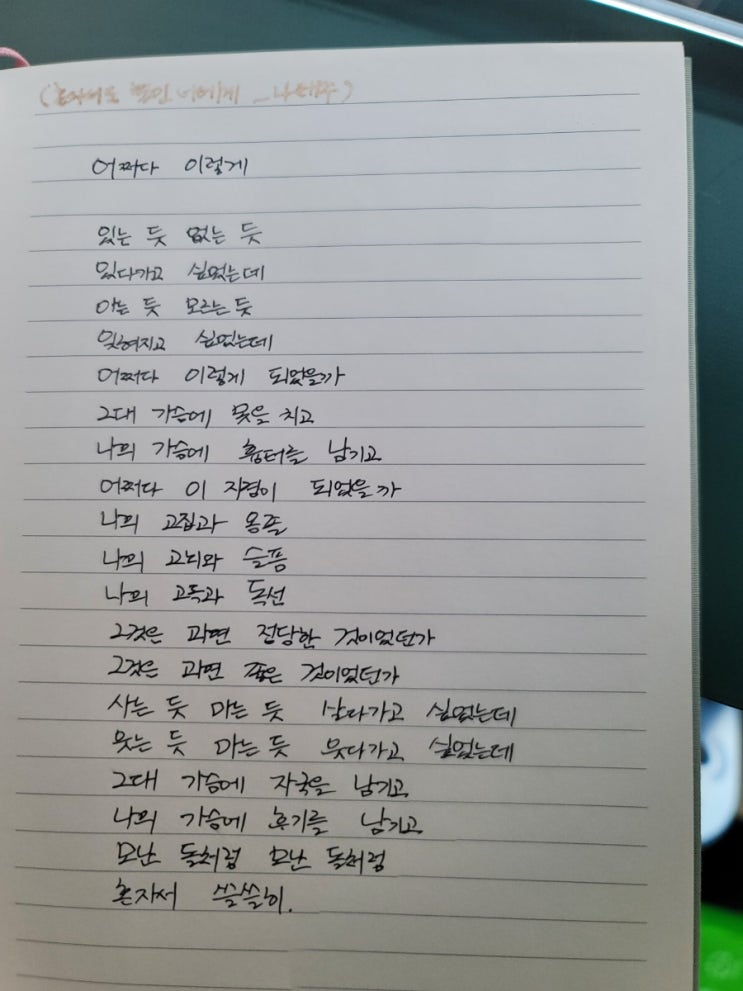 (혼자서도 꽃인 너에게 _ 나태주)
어쩌다 이렇게
있는 듯 없는 듯
있다가고 싶었는데
아는 듯 모르는 듯
잊혀지고 싶었는데
어쩌다 이렇게 되었을까
그대 가슴에 못을 치고
나의 가슴에 흉터를 남기고
어쩌다 이 지경이 되었을까
나의 고집과 옹졸
나의 고뇌와 슬픔
나의 고독과 독선
그것은 과연 정당한 것이었던가
그것은 과연 좋은 것이었던가
사는 듯 마는 듯 살다가고 싶었는데
웃는 듯 마는 듯 웃다가고 싶었는데
그대 가슴에 자국을 남기고
나의 가슴에 후기를 남기고
모난 돌처럼 모난 돌처럼
혼자서 쓸쓸히.